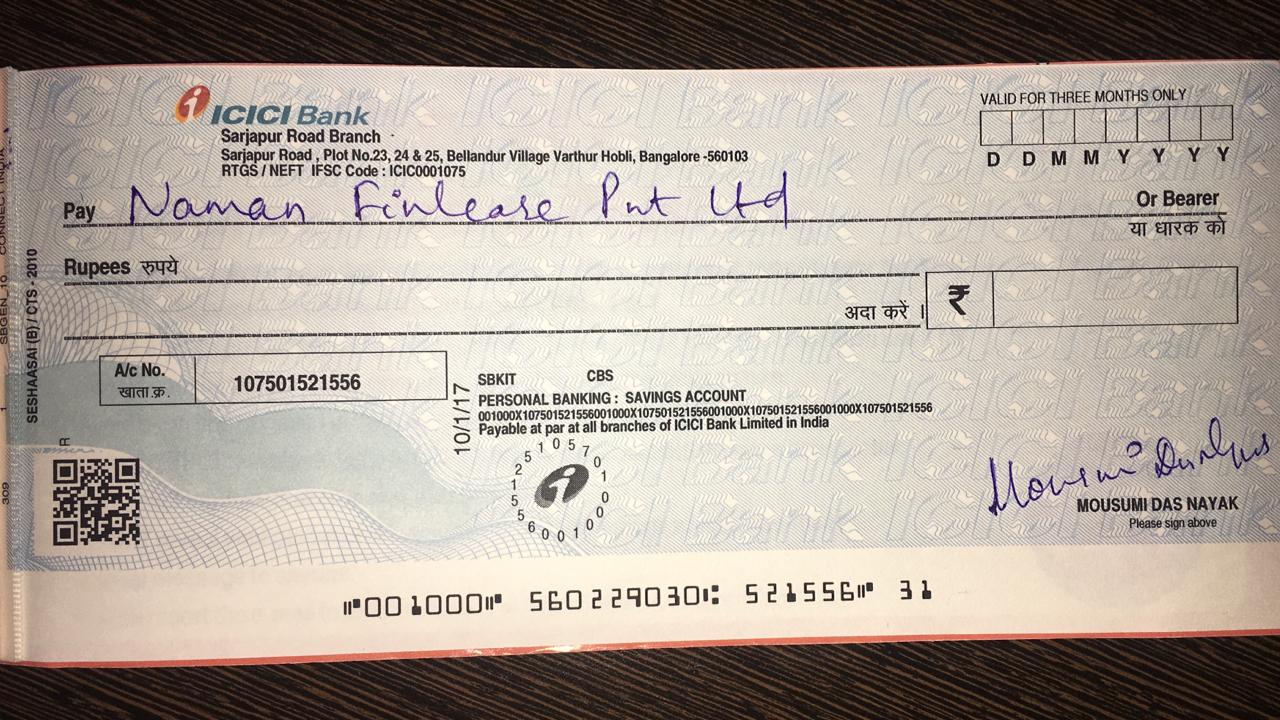 ICICI Bank
Sarjapur Road Branch
Sarjapur Road , Plot No.23, 24 & 25, Bellandur Village Varthur Hobli, Bangalore -560103
RTGS / NEFT IFSC Code : ICIC0001075
VALID FOR THREE MONTHS ONLY
D D M M Y Y Y Y
Pay Naman Finlease Pvt Ltd Or Bearer
या धारक को
Rupees रुपये
अदा करें । ₹
A/c No.
खाता.क्र.
107501521556
10/1/17
SBKIT CBS
PERSONAL BANKING : SAVINGS ACCOUNT
001000X107501521556001000X107501521556001000X107501521556001000X107501521556
Payable at par at all branches of ICICI Bank Limited in India
MOUSUMI DAS NAYAK
Please sign above
SESHAASAI (B) / CTS - 2010
R
309
⑈001000⑈ 560229030⑆ 521556⑈ 31